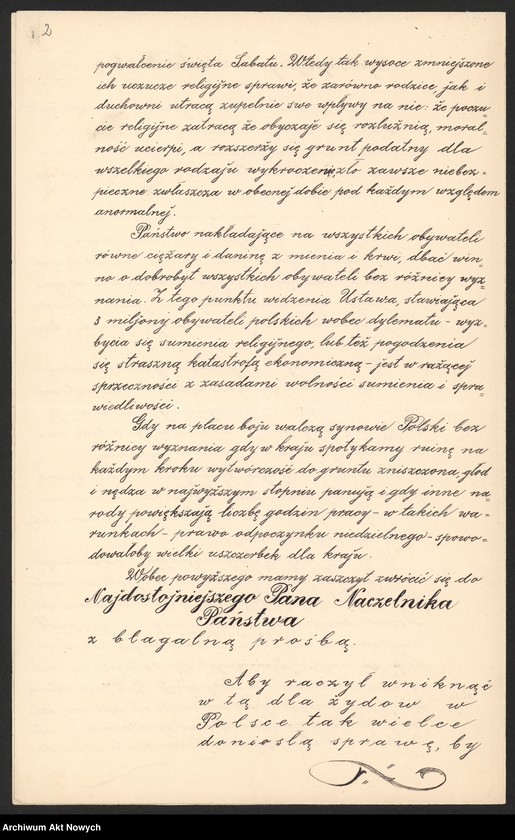 2
pogwałcenie święta Sabatu. Wtedy tak wysoce zmniejszone
ich uczucie religijne sprawi, że zarówno rodzice, jak i
duchowni utracą zupełnie swe wpływy na nie: że poczu=
cie religijne zatracą że obyczaje się rozluźnią, moral=
ność ucierpi, a rozszerzy się grunt podatny dla
wszelkiego rodzaju wykroczeń, zło zawsze niebez=
pieczne zwłaszcza w obecnej dobie pod każdym względem
anormalnej.
Państwo nakładające na wszystkich obywateli
równe ciężary i daninę z mienia i krwi, dbać win=
no o dobrobyt wszystkich obywateli bez różnicy wyz=
nania. Z tego punktu widzenia Ustawa, stawiająca
3 miljony obywateli polskich wobec dylematu - wyz=
bycia się sumienia religijnego, lub też pogodzenia
się straszną katastrofą ekonomiczną - jest w rażącej
sprzeczności z zasadami wolności sumienia i spra=
wiedliwości.
Gdy na placu boju walczą synowie Polski bez
różnicy wyznania gdy w kraju spotykamy ruinę na
każdym kroku wytwórczość do gruntu zniszczona, głód
i nędza w najwyższym stopniu panują i gdy inne na=
rody powiększają liczbę godzin pracy - w takich wa=
runkach - prawo odpoczynku niedzielnego - spowo=
dowałoby wielki uszczerbek dla kraju.
Wobec powyższego mamy zaszczyt zwrócić się do
Najdostojniejszego Pana Naczelnika
Państwa
z błagalną prośbą.
Aby raczył wniknąć
w tą dla żydow w
Polsce tak wielce
doniosłą sprawę, by
Archiwum Akt Nowych